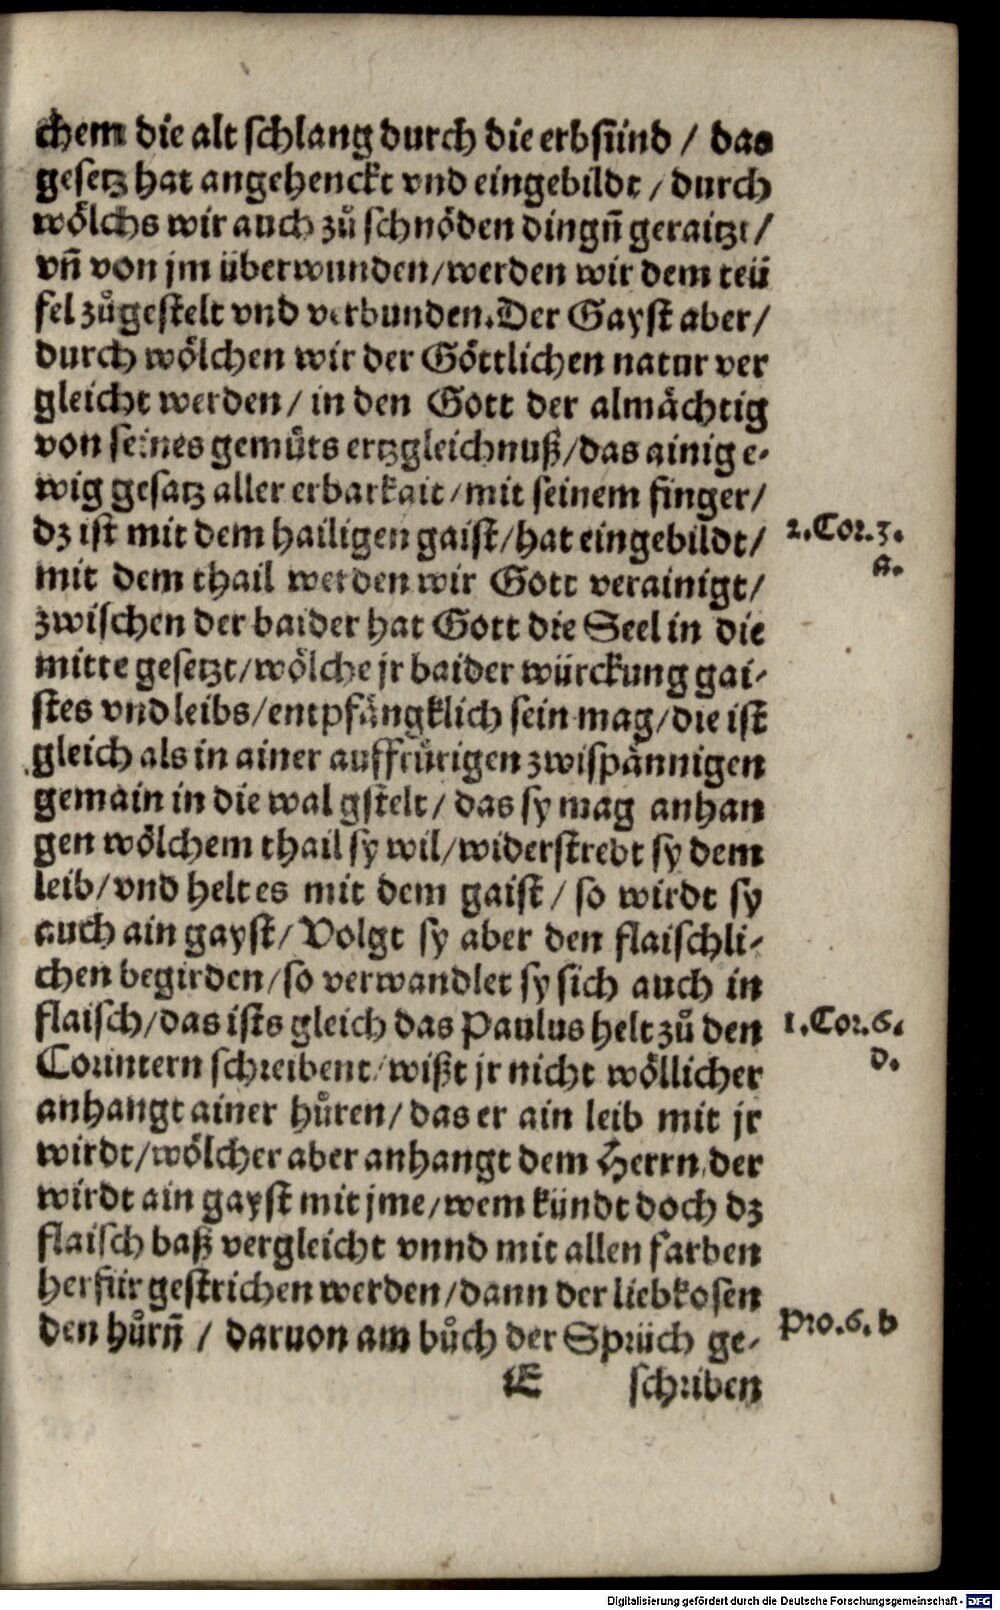 chem die alt schlang durch die erbsünd / das
gesetz hat angehenckt vnd eingebildt / durch
wölchs wir auch zů schnöden dingñ geraitzt /
vñ von jm überwunden / werden wir dem teü
fel zůgestelt vnd verbunden. Der Gayst aber /
durch wölchen wir der Göttlichen natur ver
gleicht werden / in den Gott der almächtig
von seines gemüts ertzgleichnuß / das ainig e-
wig gesatz aller erbarkait / mit seinem finger /
dz ist mit dem hailigen gaist / hat eingebildt /
2. Cor. 3.
a.
mit dem thail werden wir Gott verainigt /
zwischen der baider hat Gott die Seel in die
mitte gesetzt / wölche jr baider würckung gai-
stes vnd leibs / entpfängklich sein mag / die ist
gleich als in ainer auffrürigen zwispännigen
gemain in die wal gstelt / das sy mag anhan
gen wölchem thail sy wil / widerstrebt sy dem
leib / vnd helt es mit dem gaist / so wirdt sy
auch ain gayst / Volgt sy aber den flaischli-
chen begirden / so verwandlet sy sich auch in
flaisch / das ists gleich das Paulus helt zů den
1. Cor. 6.
d.
Corintern schreibent / wißt jr nicht wöllicher
anhangt ainer hůren / das er ain leib mit jr
wirdt / wölcher aber anhangt dem Herrn / der
wirdt ain gayst mit jme / wem kündt doch dz
flaisch baß vergleicht vnnd mit allen farben
herfür gestrichen werden / dann der liebkosen
den hůrñ / daruon am bůch der Sprüch ge-
Pro. 6. b
E schriben
Digitalisierung gefördert durch die Deutsche Forschungsgemeinschaft - DFG